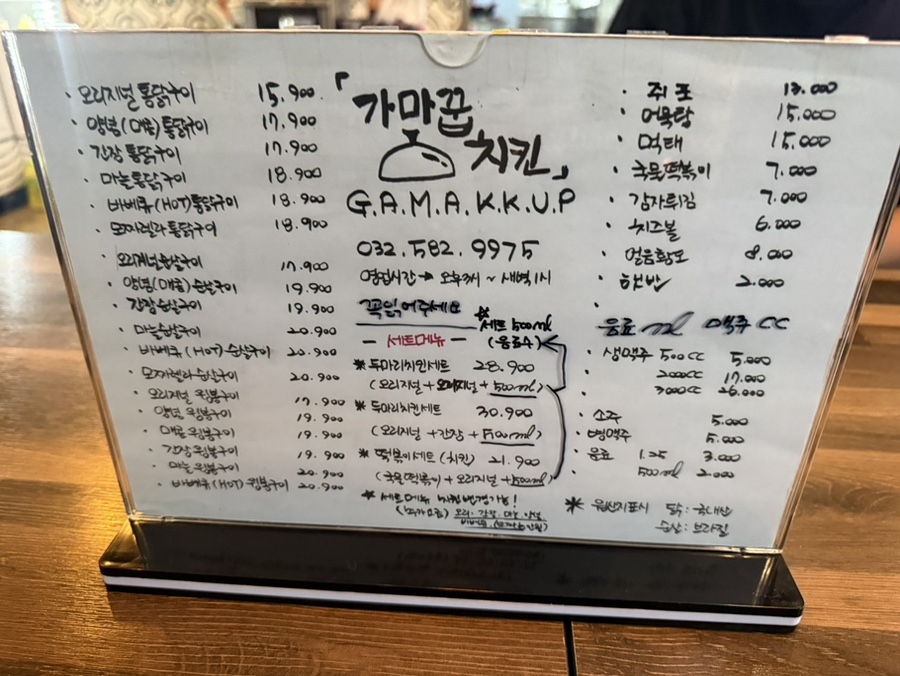 · 오리지널 통닭구이 15.900
· 양념(매콤)통닭구이 17.900
· 간장 통닭구이 17.900
· 마늘통닭구이 18.900
· 바베큐(HOT)통닭구이 18.900
· 모짜렐라통닭구이 18.900
· 오리지널순살구이 17.900
· 양념(매콤)순살구이 19.900
· 간장순살구이 19.900
· 마늘순살구이 20.900
· 바베큐(HOT)순살구이 20.900
· 모짜렐라순살구이 20.900
· 오리지널 윙봉구이 17.900
· 양념 윙봉구이 19.900
· 매콤 윙봉구이 19.900
· 간장 윙봉구이 19.900
· 마늘 윙봉구이 20.900
· 바베큐(HOT) 윙봉구이 20.900
「가마꿉
치킨」
G.A.M.A.K.K.U.P
032.582.9975
영업시간 → 오후 ~ 새벽1시
꼭읽어주세요
— 세트메뉴 —
※ 세트 500ml
(음료수)
※ 두마리치킨세트 28.900
(오리지널+오리지널+500ml)
※ 두마리치킨세트 30.900
(오리지널+간장+500ml)
※ 떡볶이세트(치킨) 21.900
(국물떡볶이+오리지널+500ml)
※ 세트메뉴 치킨변경가능!
· 쥐포 13.000
· 어묵탕 15.000
· 먹태 15.000
· 국물떡볶이 7.000
· 감자튀김 7.000
· 치즈볼 6.000
· 얼음황도 8.000
· 햇반 2.000
음료 ml 맥주 CC
· 생맥주 500cc 5.000
· 2000cc 17.000
· 3000cc 26.000
· 소주 5.000
· 병맥주 5.000
· 음료 1.25 3.000
· 500ml 2.000
※ 원산지표시 닭: 국내산
순살: 브라질